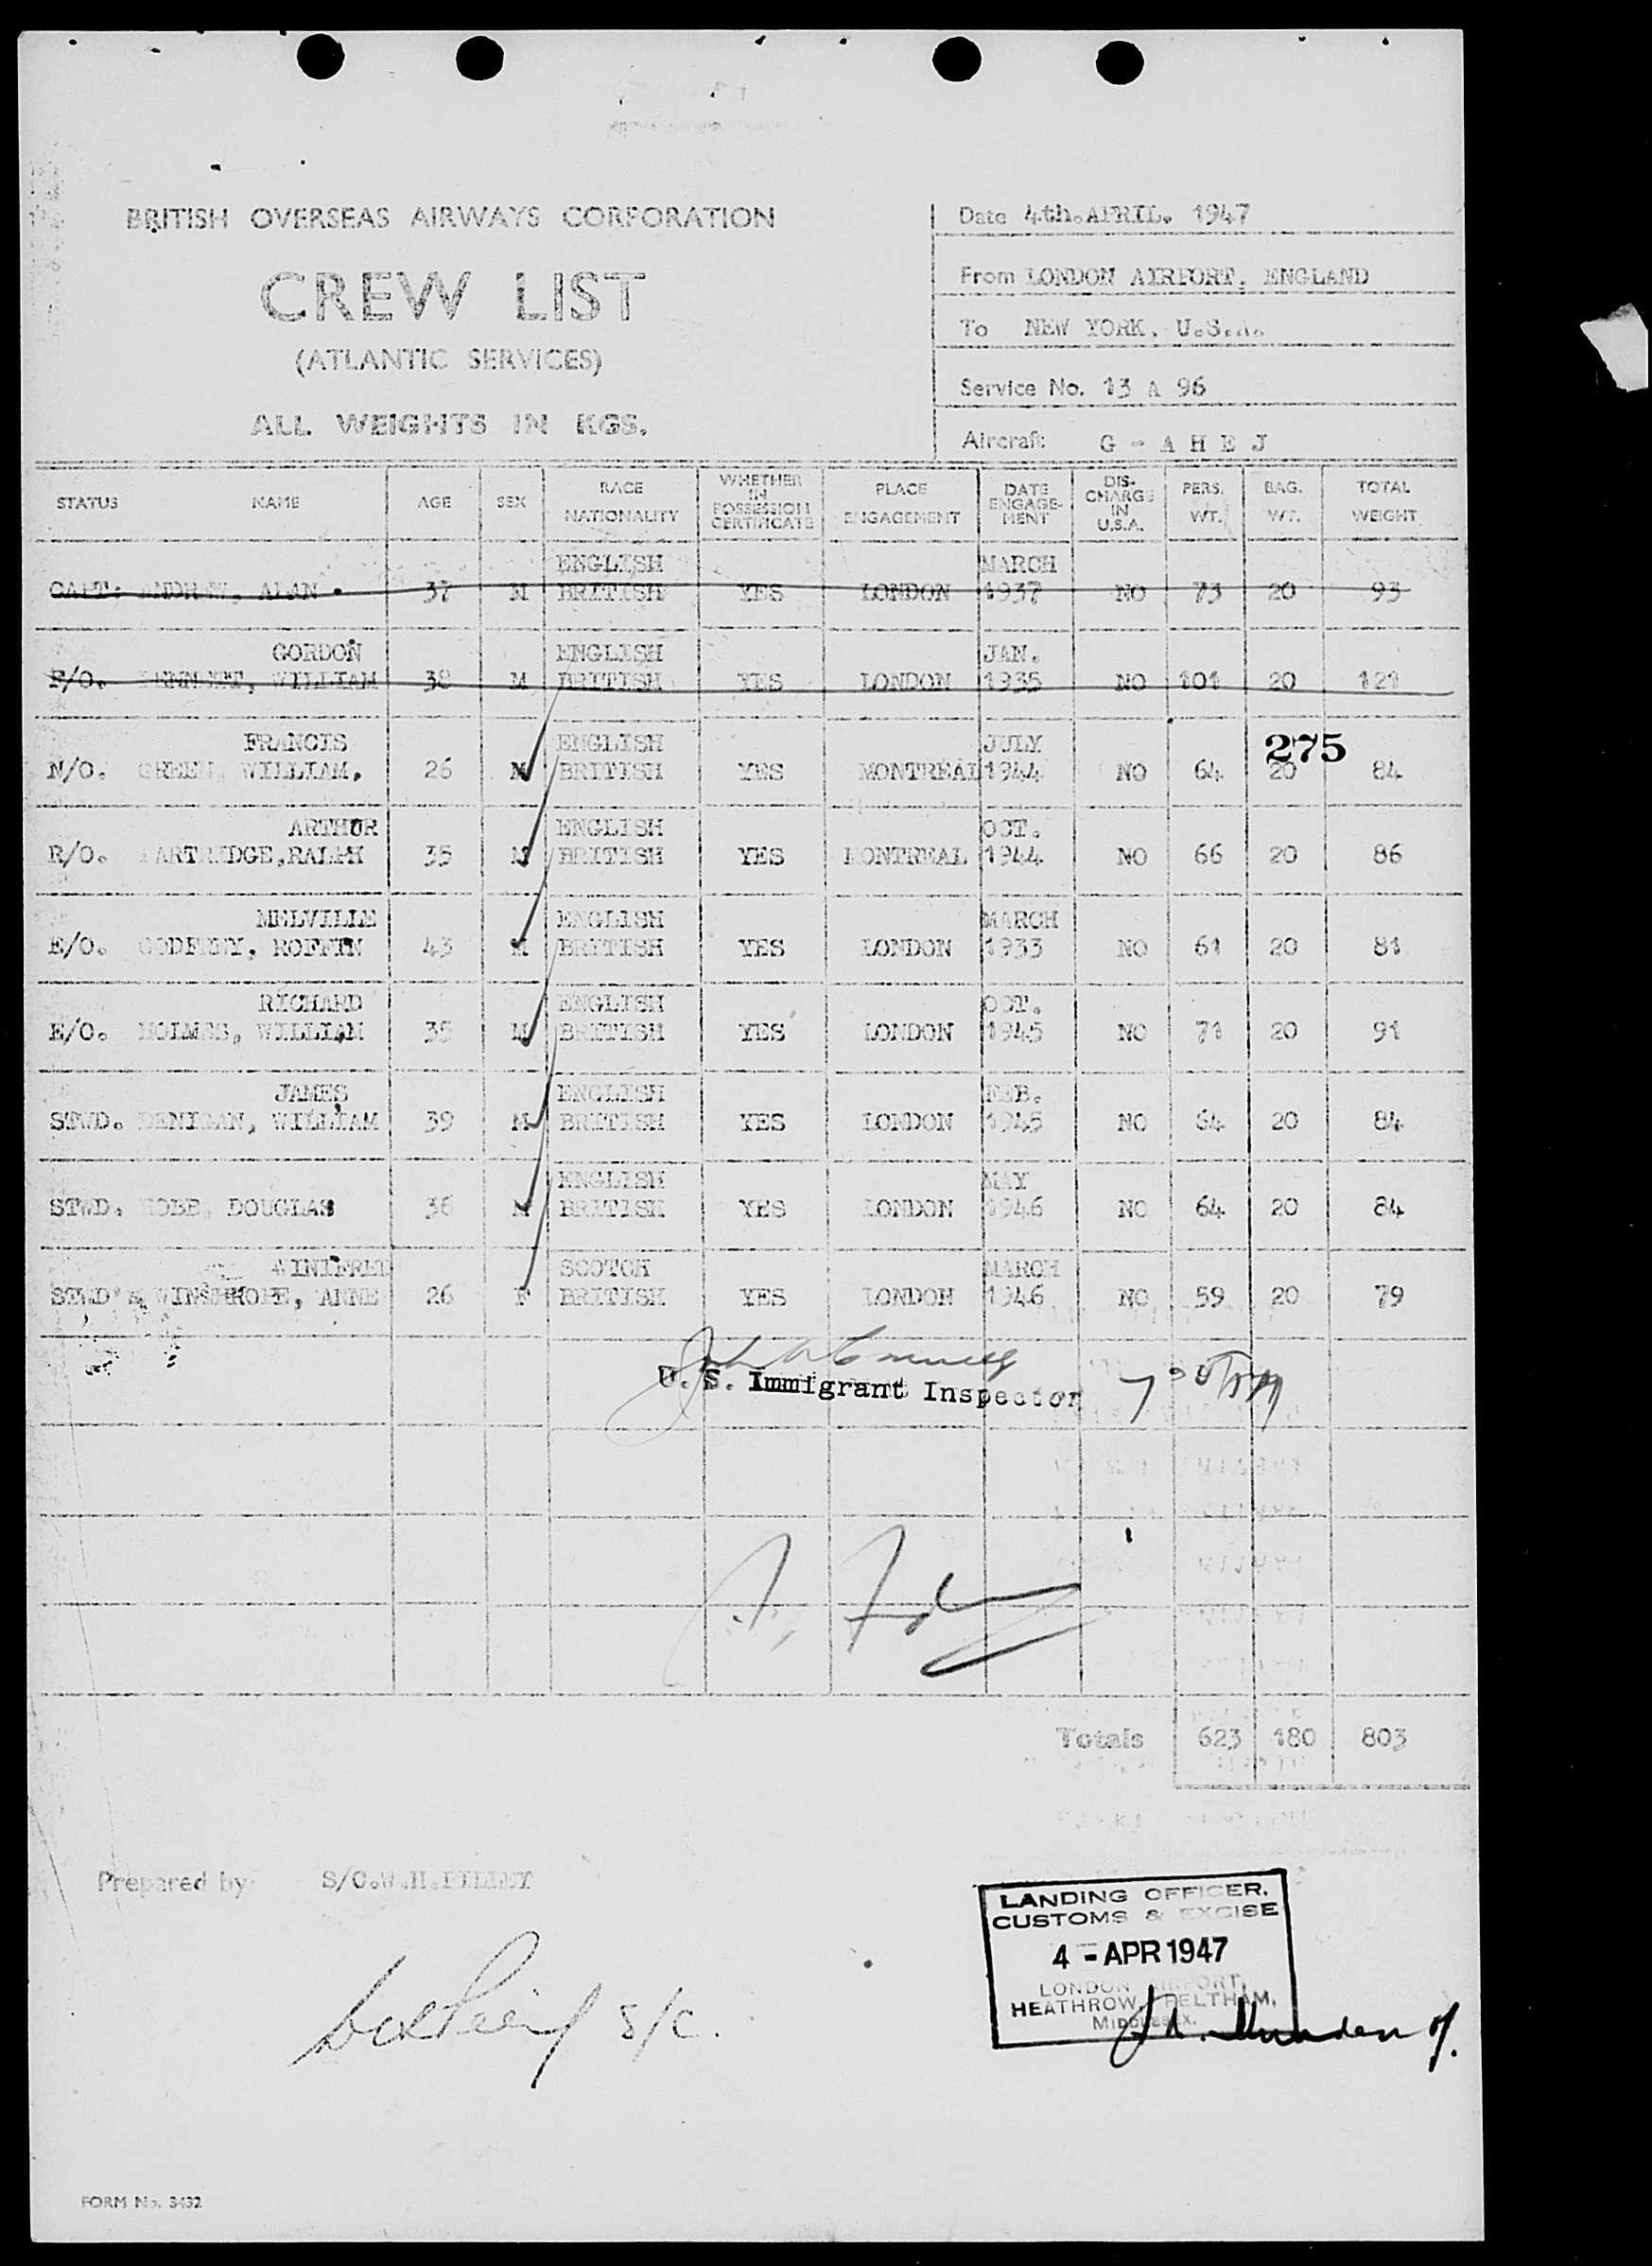 BRITISH OVERSEAS AIRWAYS CORPORATION
CREW LIST
(ATLANTIC SERVICES)
ALL WEIGHTS IN KGS.
Date 4th.APRIL. 1947
From LONDON AIRPORT. ENGLAND
To NEW YORK. U.S.A.
Service No. 13 A 96
Aircraft: G - A H E J
STATUS NAME AGE SEX RACE NATIONALITY WHETHER IN POSSESSION CERTIFICATE PLACE ENGAGEMENT DATE ENGAGE-MENT DIS-CHARGE IN U.S.A. PERS. WT. BAG. WT. TOTAL WEIGHT
ENGLISH MARCH
CAPT: ANDREW, ALAN. 37 M BRITISH YES LONDON 1937 NO 73 20 93
GORDON ENGLISH JAN.
F/O. BENNETT, WILLIAM 38 M BRITISH YES LONDON 1935 NO 101 20 121
FRANCIS ENGLISH JULY 275
N/O. GREEN, WILLIAM. 26 M BRITISH YES MONTREAL 1944 NO 64 20 84
ARTHUR ENGLISH OCT.
R/O. PARTRIDGE,RALPH 35 M BRITISH YES MONTREAL 1944 NO 66 20 86
MELVILLE ENGLISH MARCH
E/O. GODFREY, ROFFEN 43 M BRITISH YES LONDON 1933 NO 61 20 81
RICHARD ENGLISH OCT.
E/O. HOLMES, WILLIAM 35 M BRITISH YES LONDON 1945 NO 71 20 91
JAMES ENGLISH FEB.
STWD. DENIGAN, WILLIAM 39 M BRITISH YES LONDON 1945 NO 64 20 84
ENGLISH MAY
STWD. DOUGLAS 36 M BRITISH YES LONDON 1946 NO 64 20 84
WINIFRED SCOTCH MARCH
STWD'S WINSHROPE, ANNE 26 F BRITISH YES LONDON 1946 NO 59 20 79
U. S. Immigrant Inspector
Totals 623 180 803
Prepared by S/C.W.H.
S/C.
LANDING OFFICER.
CUSTOMS & EXCISE
4 - APR 1947
LONDON AIRPORT,
HEATHROW, FELTHAM,
MIDDLESEX.
FORM No. 3432